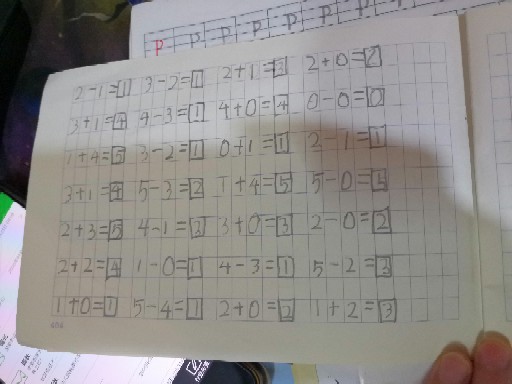 P P P P P P P
2-1=1 3-2=1 2+1=3 2+0=2
3+1=4 4-3=1 4+0=4 0-0=0
1+4=5 3-2=1 0+1=1 2-1=1
3+1=4 5-3=2 1+4=5 5-0=5
2+3=5 4-1=3 3+0=3 2-0=2
2+2=4 1-0=1 4-3=1 5-2=3
1+0=1 5-4=1 2+0=2 1+2=3